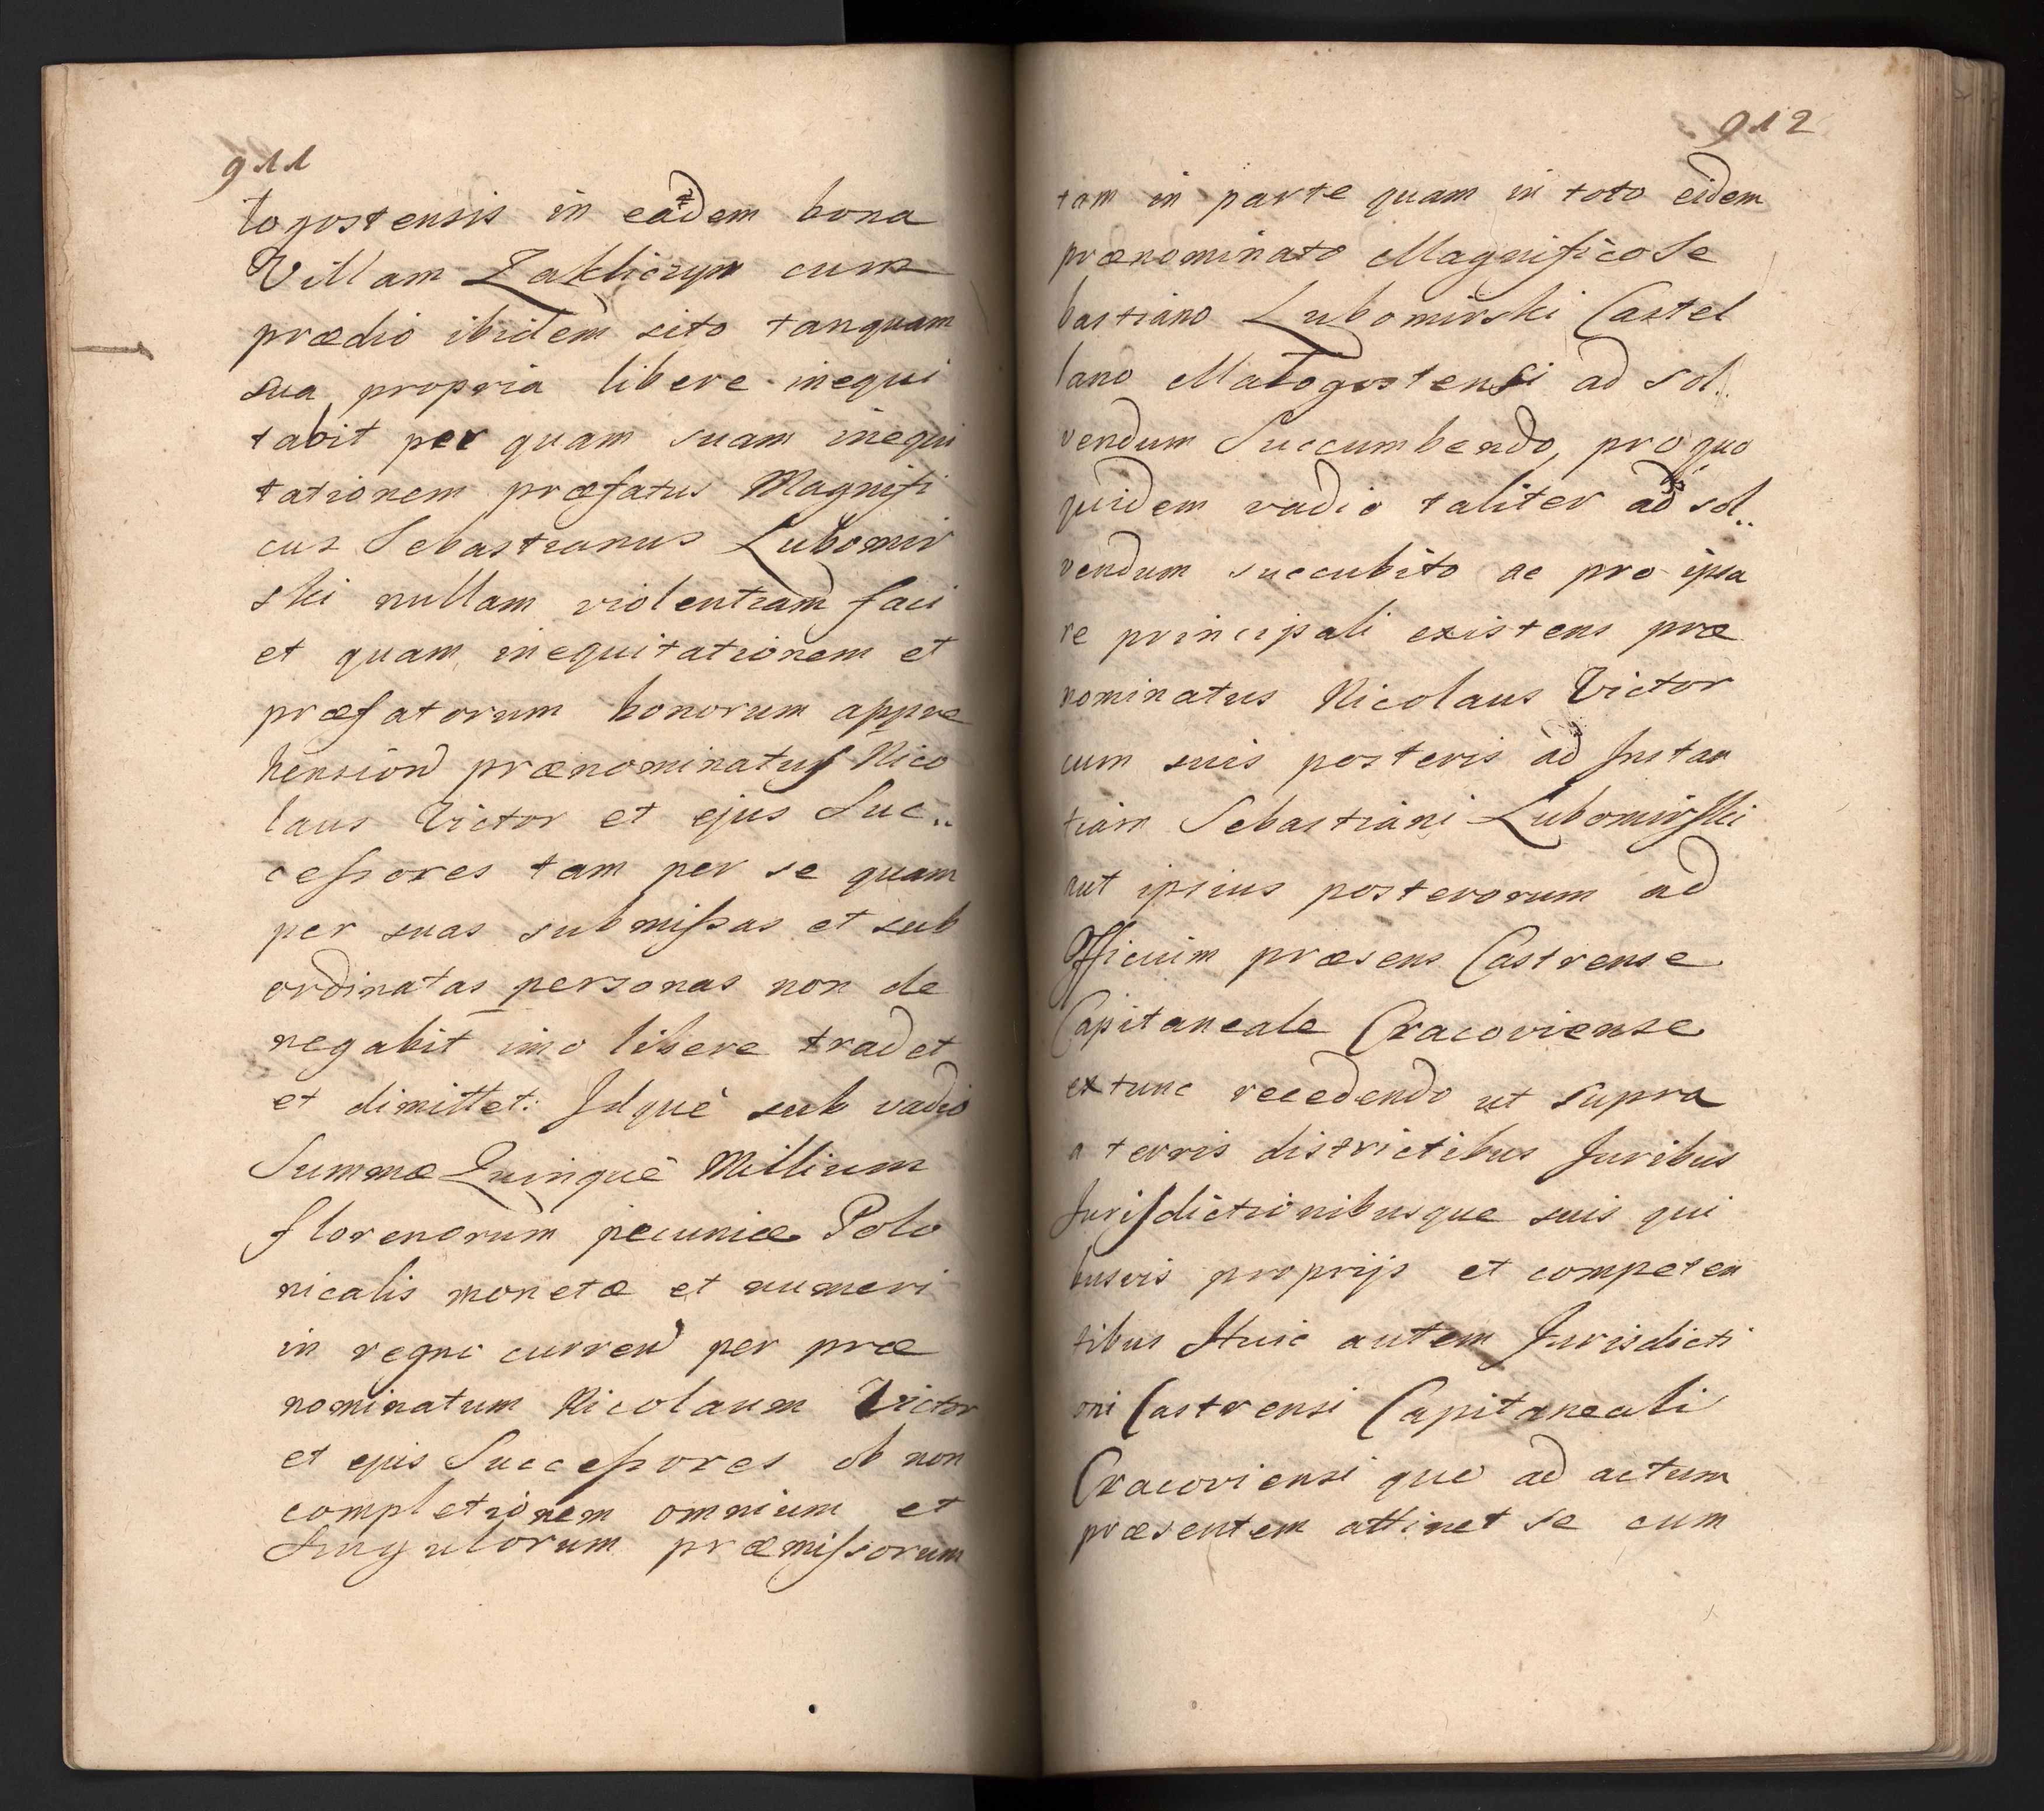 911
togostensis in eadem bona
Villam Zakliczyn cum
prædio ibidem sito tanquam
sua propria libere inequi
tabit per quam suam inequi
tationem præfatus Magnifi
cus Sebastianus Lubomir
ski nullam violentiam faci
et quam inequitationem et
præfatorum bonorum appre
hension prænominatus Nico
laus Victor et ejus Suc..
cessores tam per se quam
per suas submissas et sub
ordinatas personas non de
negabit imo libere tradet
et dimittet: Idquè sub vadio
Summæ Quinquè Millium
florenorum pecuniæ Polo
nicalis monetæ et numeri
in regno curren per præ
nominatum Nicolaum Victor
et ejus Successores ob non
completionem omnium et
Singulorum præmissorum
912
tam in parte quam in toto eidem
prænominato Magnifico Se
bastiano Lubomirski Castel
lano Małogostensi ad sol..
vendum Succumbendo, pro quo
quidem vadio taliter ad sol..
vendum succubito ac pro ipsa
re principali existens præ
nominatus Nicolaus Victor
cum suis posteris ad Instan
tiam Sebastiani Lubomirski
aut ipsius posterorum ad
Officium præsens Castrense
Capitaneale Cracoviense
extunc recedendo ut supra
a terris districtibus Juribus
Jurisdictionibusque suis qui
busvis proprijs et competen
tibus Huic autem Jurisdicti
oni Castrensi Capitaneali
Cracoviensi quo ad actum
præsentem attinet se cum